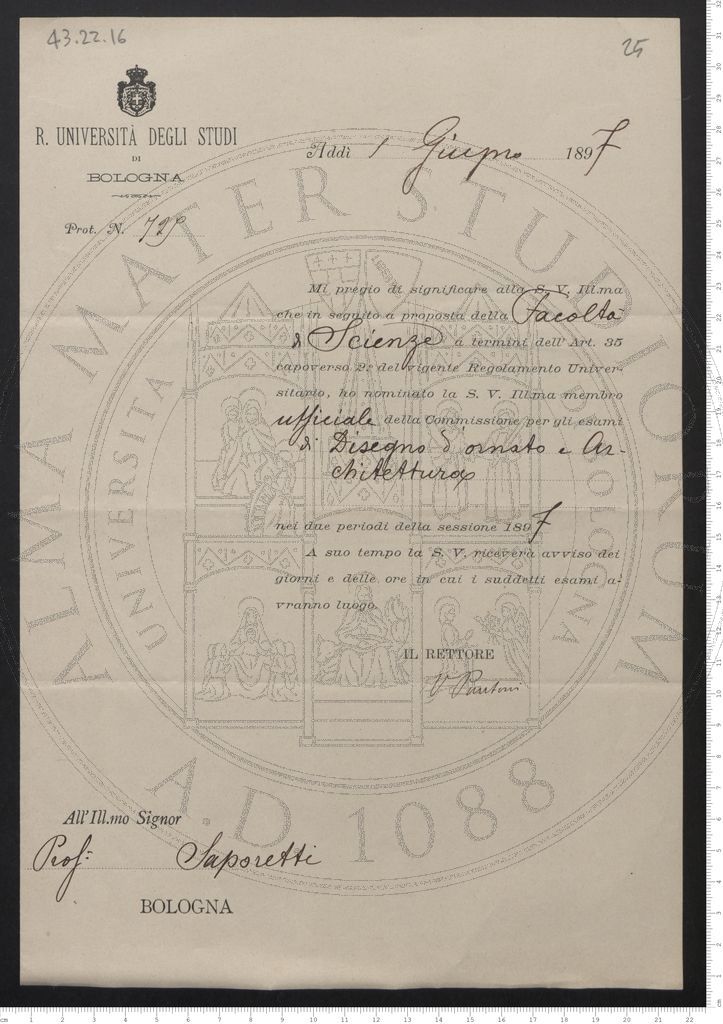 43.22.16
25
R. UNIVERSITÀ DEGLI STUDI
DI
BOLOGNA
Addì 1 Giugno 1897
Prot. N. 729
Mi pregio di significare alla S. V. Ill.ma
che in seguito a proposta della Facoltà
di Scienze a termini dell'Art. 35
capoverso 2º del vigente Regolamento Univer-
sitario, ho nominato la S. V. Ill.ma membro
ufficiale della Commissione per gli esami
di Disegno d'ornato e Ar-
chitettura
nei due periodi della sessione 1897
A suo tempo la S. V. riceverà avviso dei
giorni e delle ore in cui i suddetti esami a-
vranno luogo.
IL RETTORE
V Puntoni
All'Ill.mo Signor
Prof: Saporetti
BOLOGNA
ALMA MATER STUDIORUM
UNIVERSITA DI BOLOGNA
A.D 1088